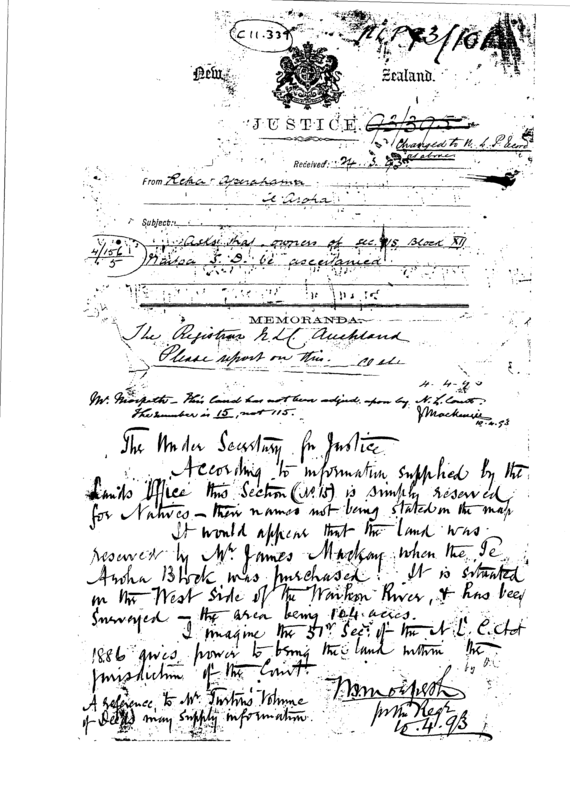 C 11.339
NLP 93/101
New Zealand.
JUSTICE.
93/395
Changed to N. L. P. Record
as above
Received: 24. 3. 93
From Reha Aperahama
Te Aroha
Subject:
4/156
5
Asks that owners of sec. 15 Block XI
S. D. be ascertained
MEMORANDA.
The Registrar N L C Auckland
Please report on this.
4. 4. 93
Mr. Morpeth – This land has not been adjud. upon by N. L. Court.
The number is 15, not 115.
J Mackenzie
10.4.93
The Under Secretary for Justice
According to information supplied by the
Lands Office this Section (No 15) is simply reserved
for Natives – their names not being stated on the map
It would appear that the land was
reserved by Mr James Mackay when the Te
Aroha Block was purchased. It is situated
on the West side of the Waihou River, & has been
surveyed – the area being 104 acres.
I imagine the 51st Sec: of the N. L. C. Act
1886 gives power to bring the land within the
jurisdiction of the Court.
by O.C.
A reference to Mr Turton's Volume
of Deeds may supply information.
Morpeth
Regr
10. 4. 93